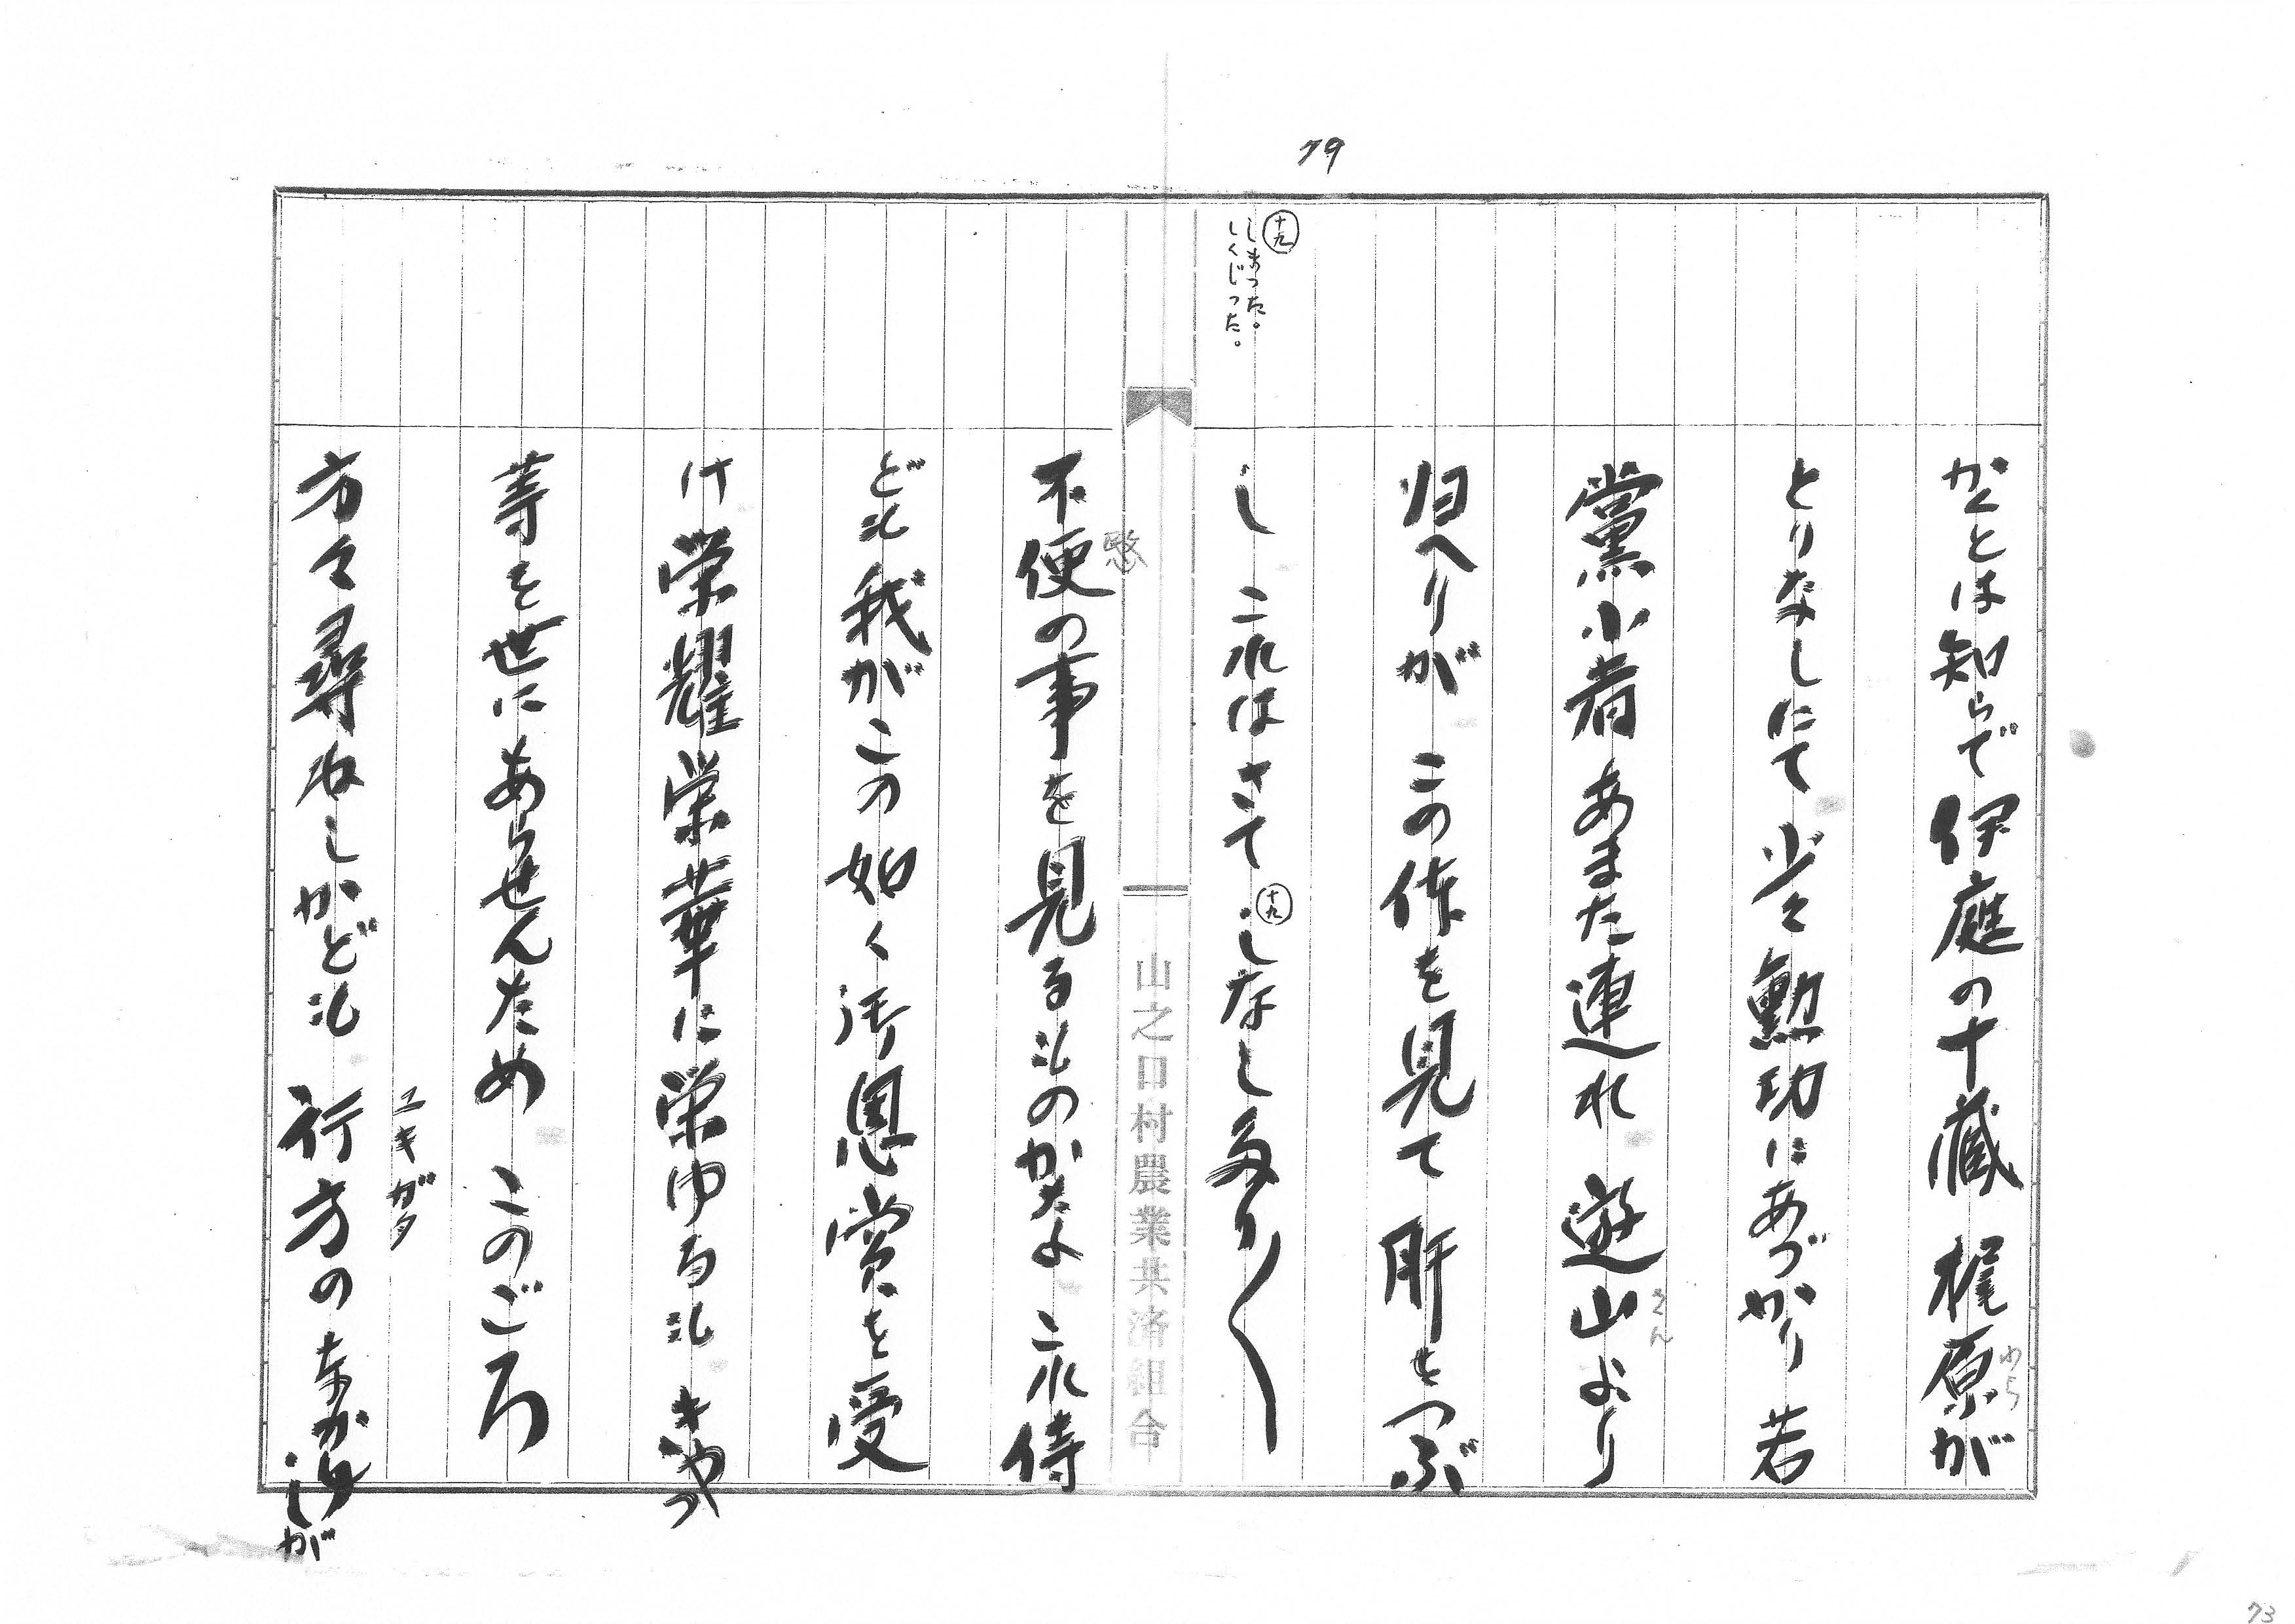 79
かくとは知らで伊庭の十蔵 梶原が
わら
とりなしにて 少々勲功にあづかり 若
黨小者あまた連れ 遊山より
さん
归へりが この体を見て 肝をつぶ
十九
しまった。
しくじった。
し これはさて しなしたり〱
十九
山之口村農業共済組合
不便の事を見るものかなよ これ侍
愍
ども我がこの如く御恩賞を受
け栄耀栄華に栄ゆるも きやつ
等を世にあらせんため このごろ
方々尋ねしかども 行方のなかりしが
ユキガタ
73